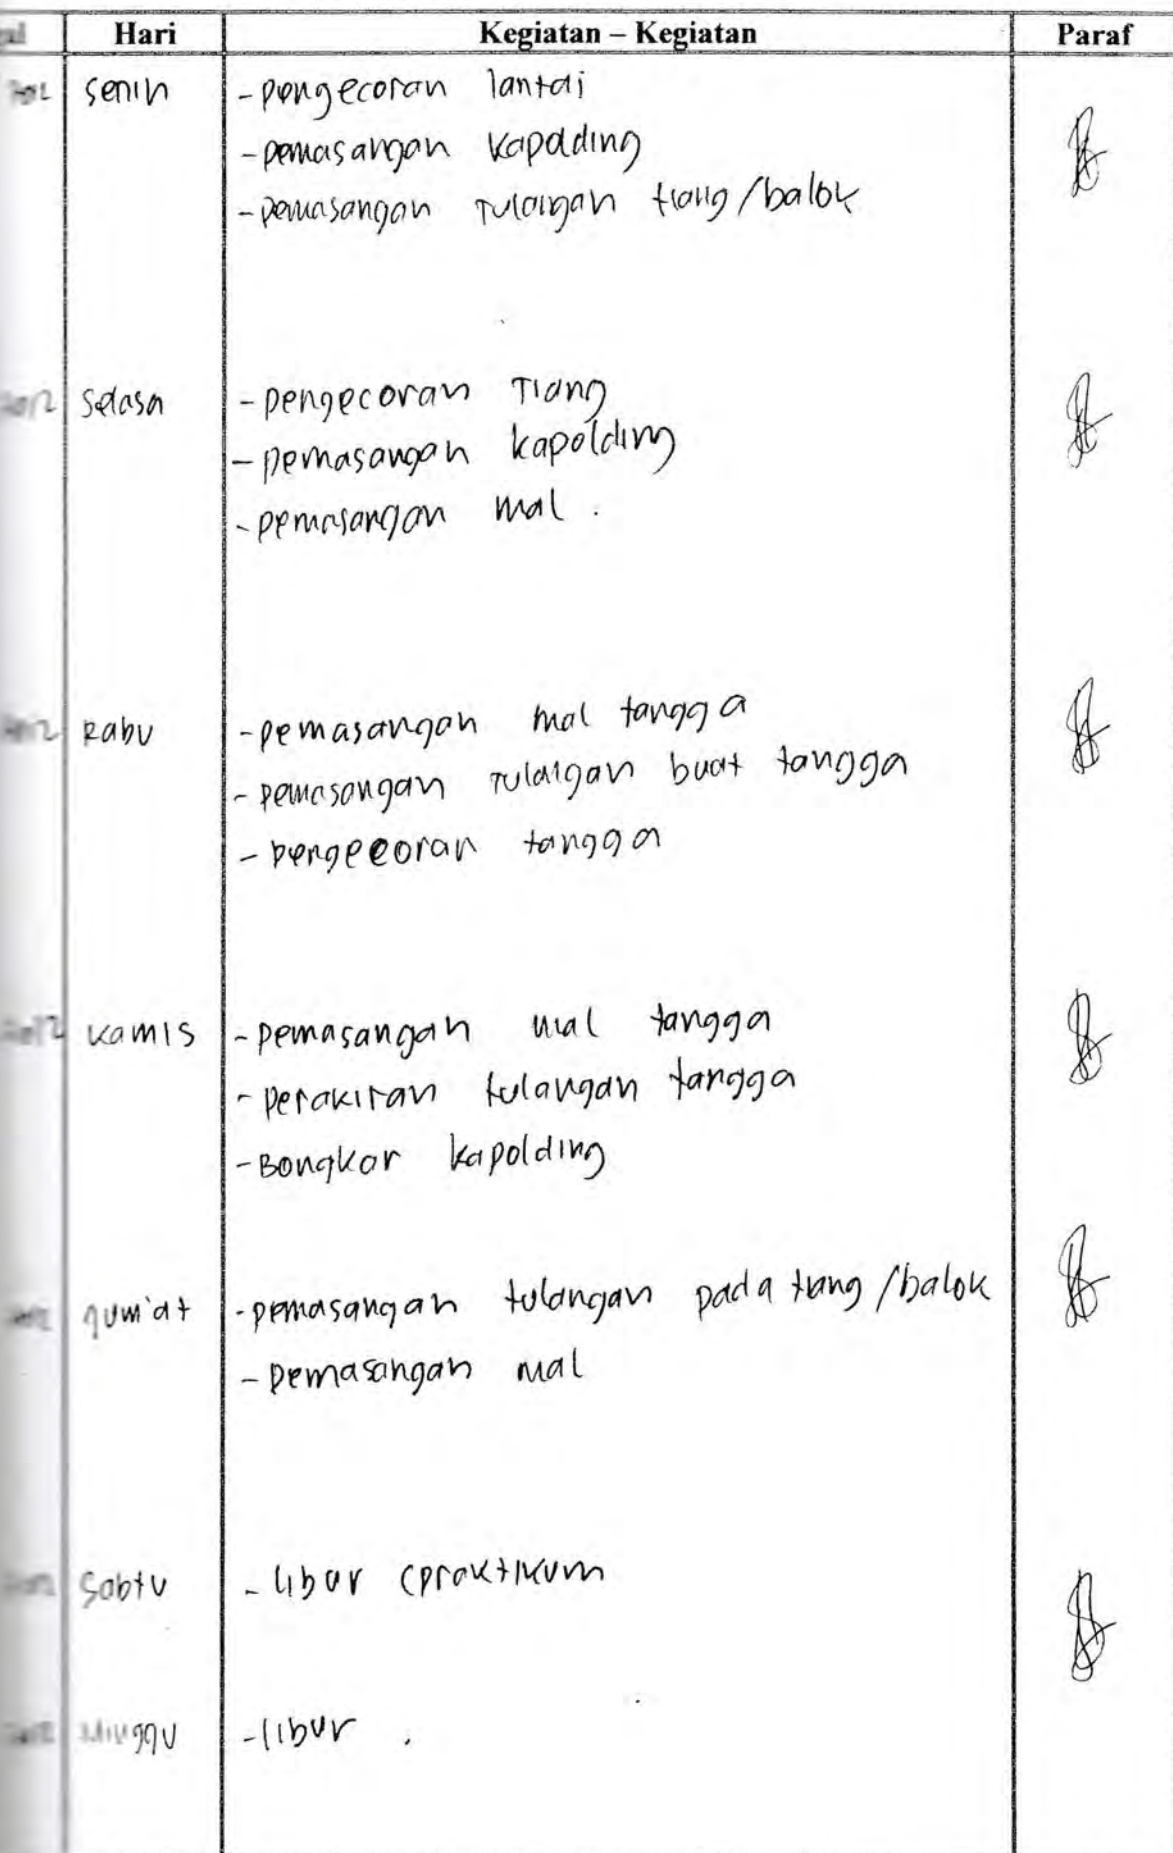 Hari Kegiatan – Kegiatan Paraf
senin - pengecoran lantai
- pemasangan kapolding
- pemasangan Tulangan tiang/balok
selasa - pengecoran Tiang
- pemasangan kapolding
- pemasangan mal .
Rabu - pemasangan mal tangga
- pemasangan Tulangan buat tangga
- pengecoran tangga
kamis - pemasangan mal tangga
- perakitan tulangan tangga
- Bongkar kapolding
jum'at - pemasangan tulangan pada tiang/balok
- pemasangan mal
Sabtu - libur (praktikum
Minggu - libur .